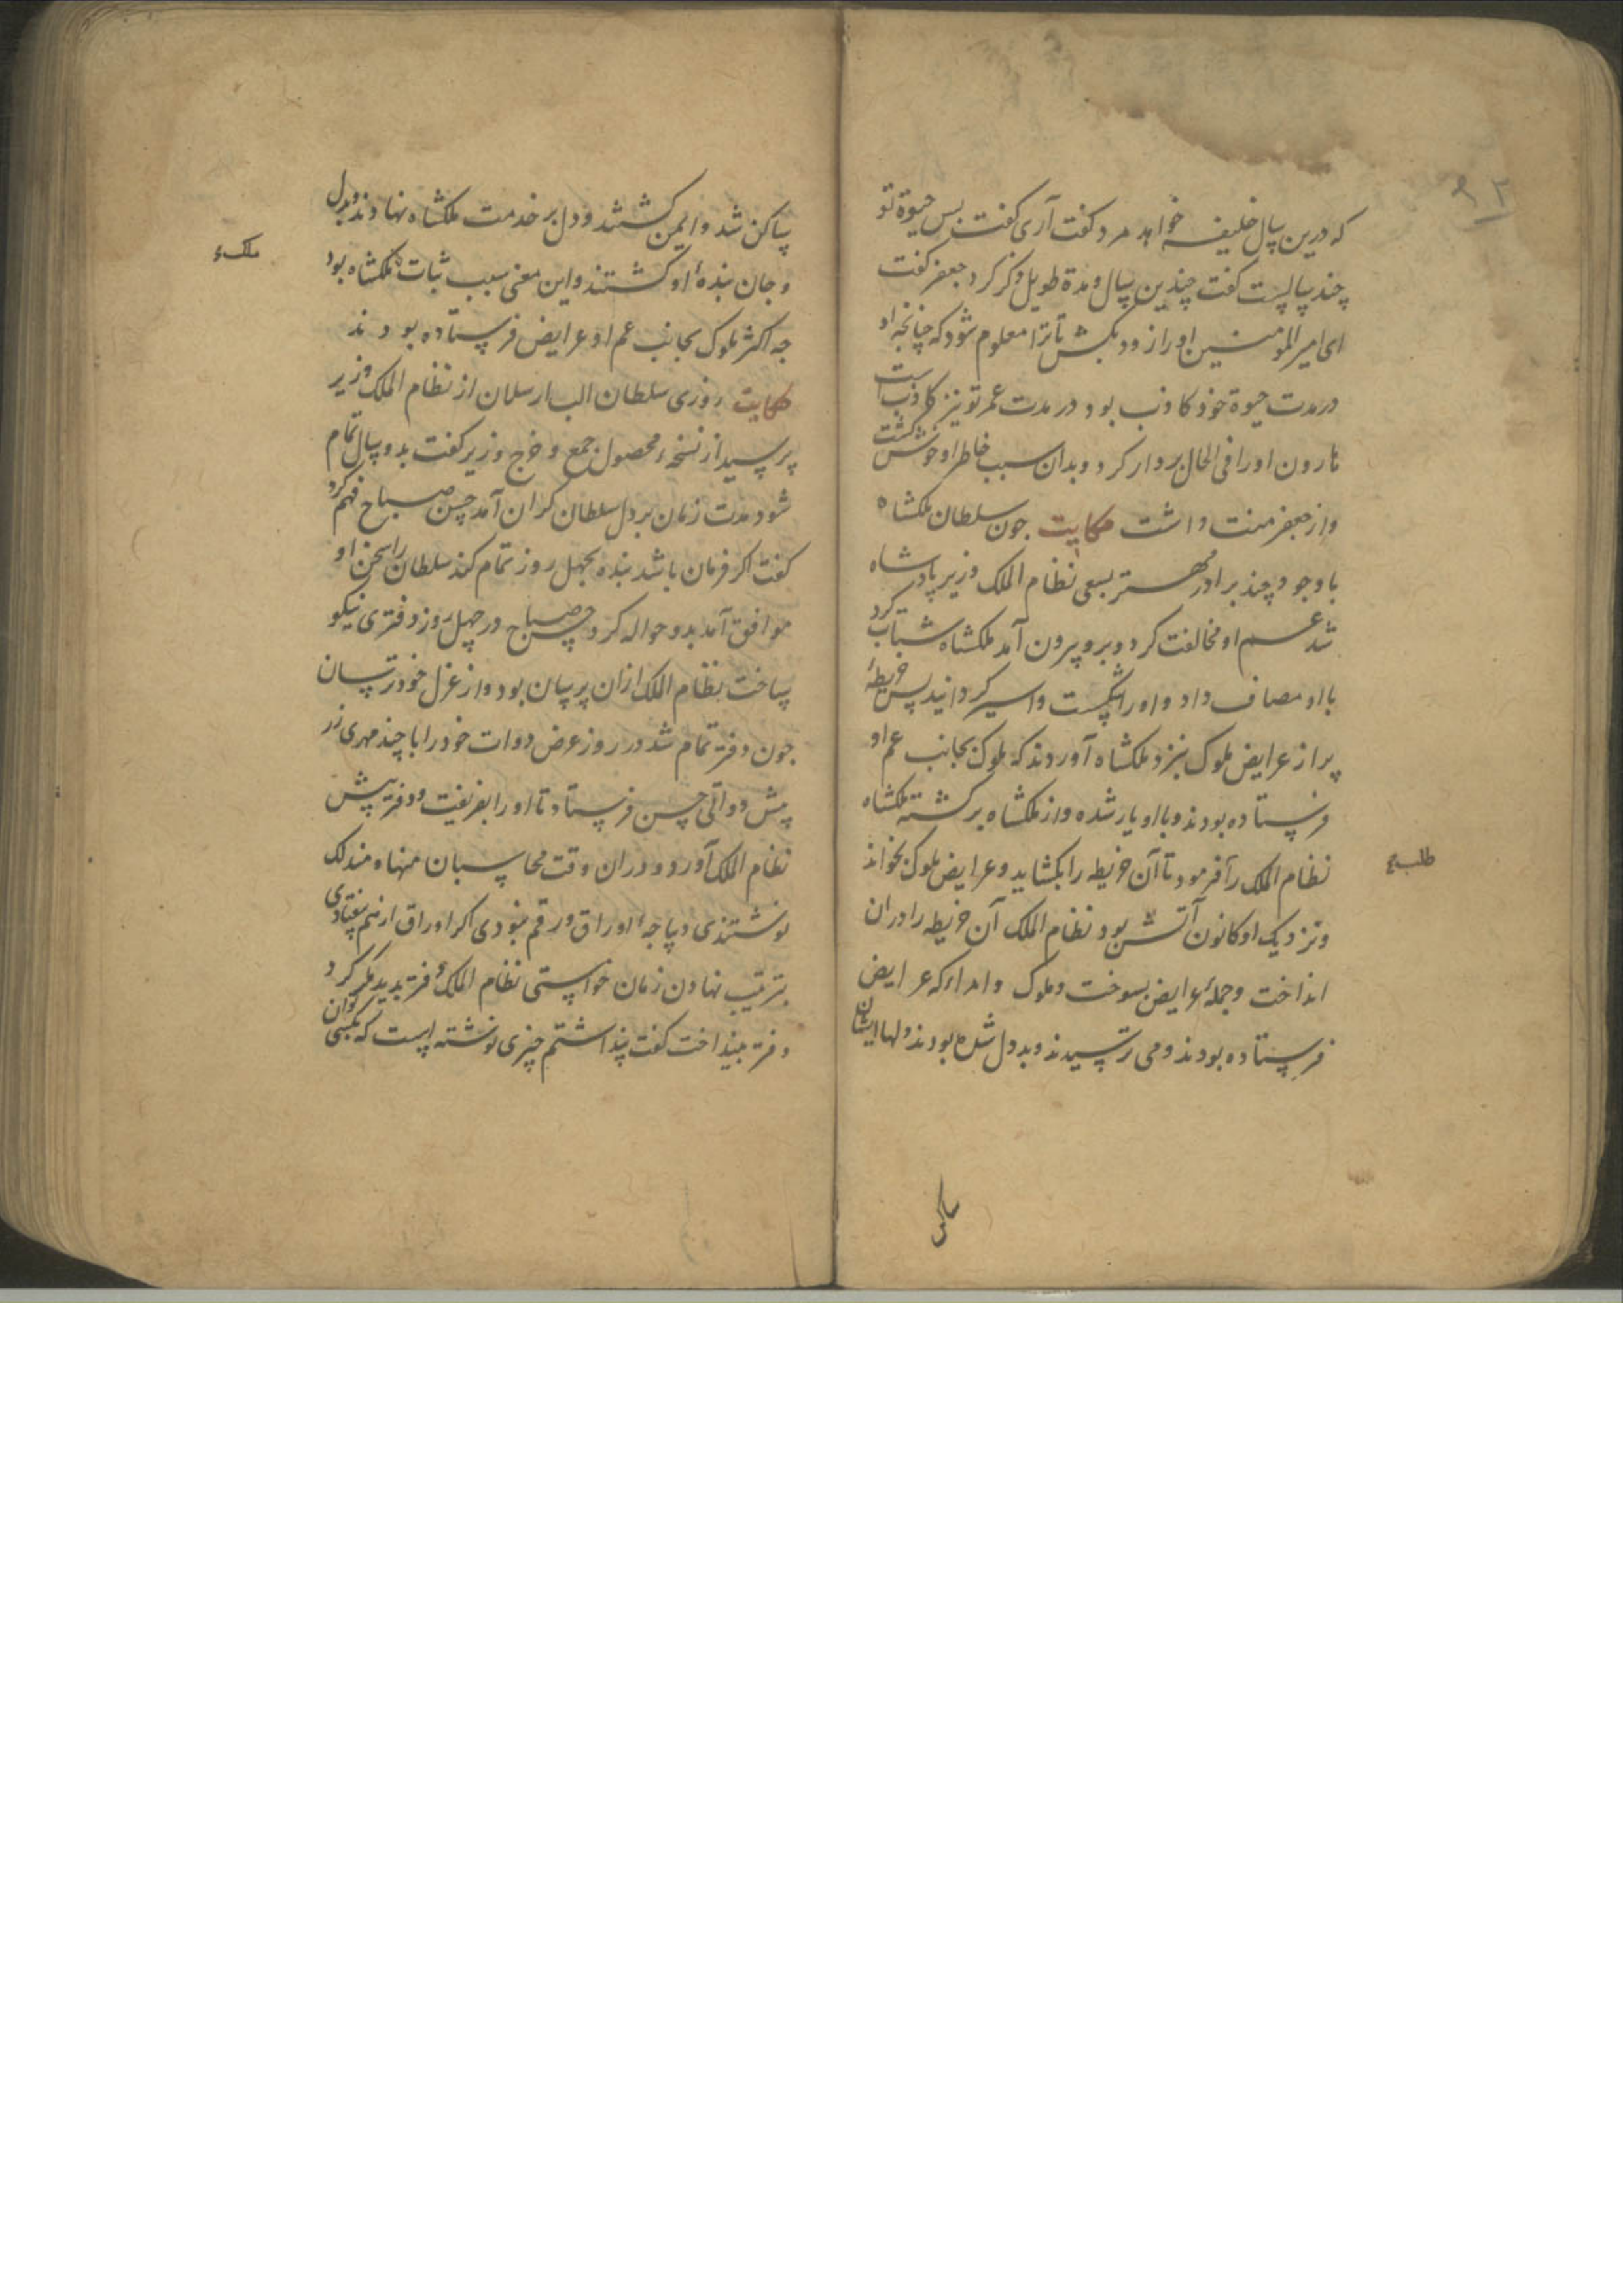 ۹۲
که درین سال خلیفه خواهد مرد گفت آری گفت بس حیوة تو
چند سالست گفت چندین سال و مدة طویل ذکر کرد جعفر گفت
ای امیر المومنین او را زود بکش تا ترا معلوم شود که چنانچه او
در مدت حیوة خود کاذب بود در مدت عمر تو نیز کاذب است
هارون او را فی الحال بردار کرد و بدان سبب خاطر او خوش گشت
و از جعفر منت داشت حکایت جون سلطان ملکشاه
با وجود چند برادر مهتر بسعی نظام الملک وزیر پادشاه
شد عم او مخالفت کرد و برو بیرون آمد ملکشاه شتاب کرد
با او مصاف داد و او را شکست و اسیر کردانید پس خریطهٔ
پر از عرایض ملوک بنزد ملکشاه آوردند که ملوک بجانب عم او
فرستاده بودند و با او یار شده و از ملکشاه برکشته ملکشاه
نظام الملک را فرمود تا آن خریطه را بکشاید و عرایض ملوک بخواند
و نزدیک او کانون آتش بود نظام الملک آن خریطه را در آن
انداخت و جملهٔ عرایض بسوخت و ملوک و امراء که عرایض
فرستاده بودند و می ترسیدند و بد دل شده بودند دلهاء ایشان
ساکن
ساکن شد و ایمن کشتند و دل بر خدمت ملکشاه نهادند و بدل
و جان بندهٔ او کشتند و این معنی سبب ثبات ملک ملکشاه بود
جه اکثر ملوک بجانب عم او عرایض فرستاده بودند
حکایت روزی سلطان الب ارسلان از نظام الملک وزیر
پرسید از نسخهٔ محصول جمع و خرج وزیر کفت بدو سال تمام
شود مدت زمان بر دل سلطان کران آمد حسن صباح فهم کرد
کفت اکر فرمان باشد بنده بجهل روز تمام کند سلطان را سخن او
موافق آمد بدو حواله کرد حسن صباح در چهل روز دفتری نیکو
ساخت نظام الملک ازان پرسان بود و از عزل خود ترسان
جون دفتر تمام شد در روز عرض دوات خود را با چند مهری زر
پیش دواتی حسن فرستاد تا او را بفریفت و دفتر پیش
نظام الملک آورد و دران وقت محاسبان منها و منذلک
نوشتندی و دیباجهٔ اوراق ورقم نبودی اکر اوراق از هم بیفتادی
بترتیب نهادن زمان خواستی نظام الملک دفتر بدید مکر کرد
دفتر بینداخت کفت پنداشتم چیزی نوشته است که بکسی توان